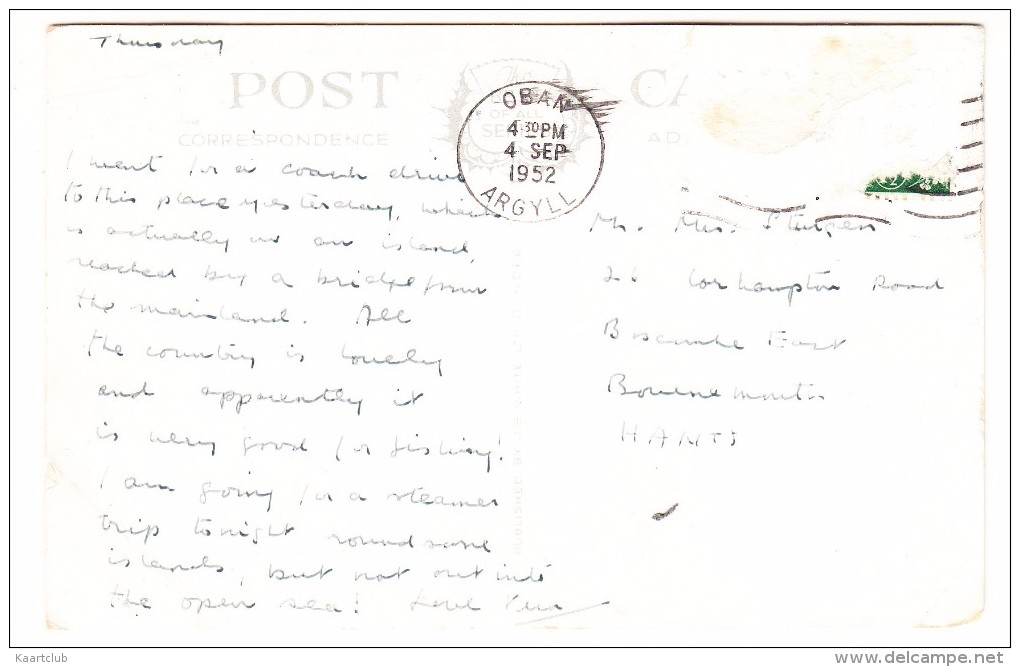 Thursday
POST CA
CORRESPONDENCE AD
OBAN
4 30 PM
4 SEP
1952
ARGYLL
I went for a coach drive
to this place yesterday, which
is actually on an island,
reached by a bridge from
the mainland. All
the country is lovely
and apparently it
is very good for fishing!
I am going for a steamer
trip tonight round some
islands, but not out into
the open sea! Love Vera
Mr. Mrs.
26 Corhampton Road
Boscombe East
Bournemouth
HANTS
Kaartclub
www.delcampe.net